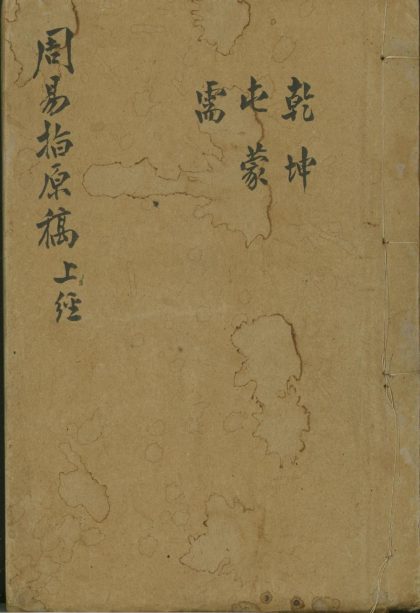 乾坤
屯蒙
需
周易指原稿上經